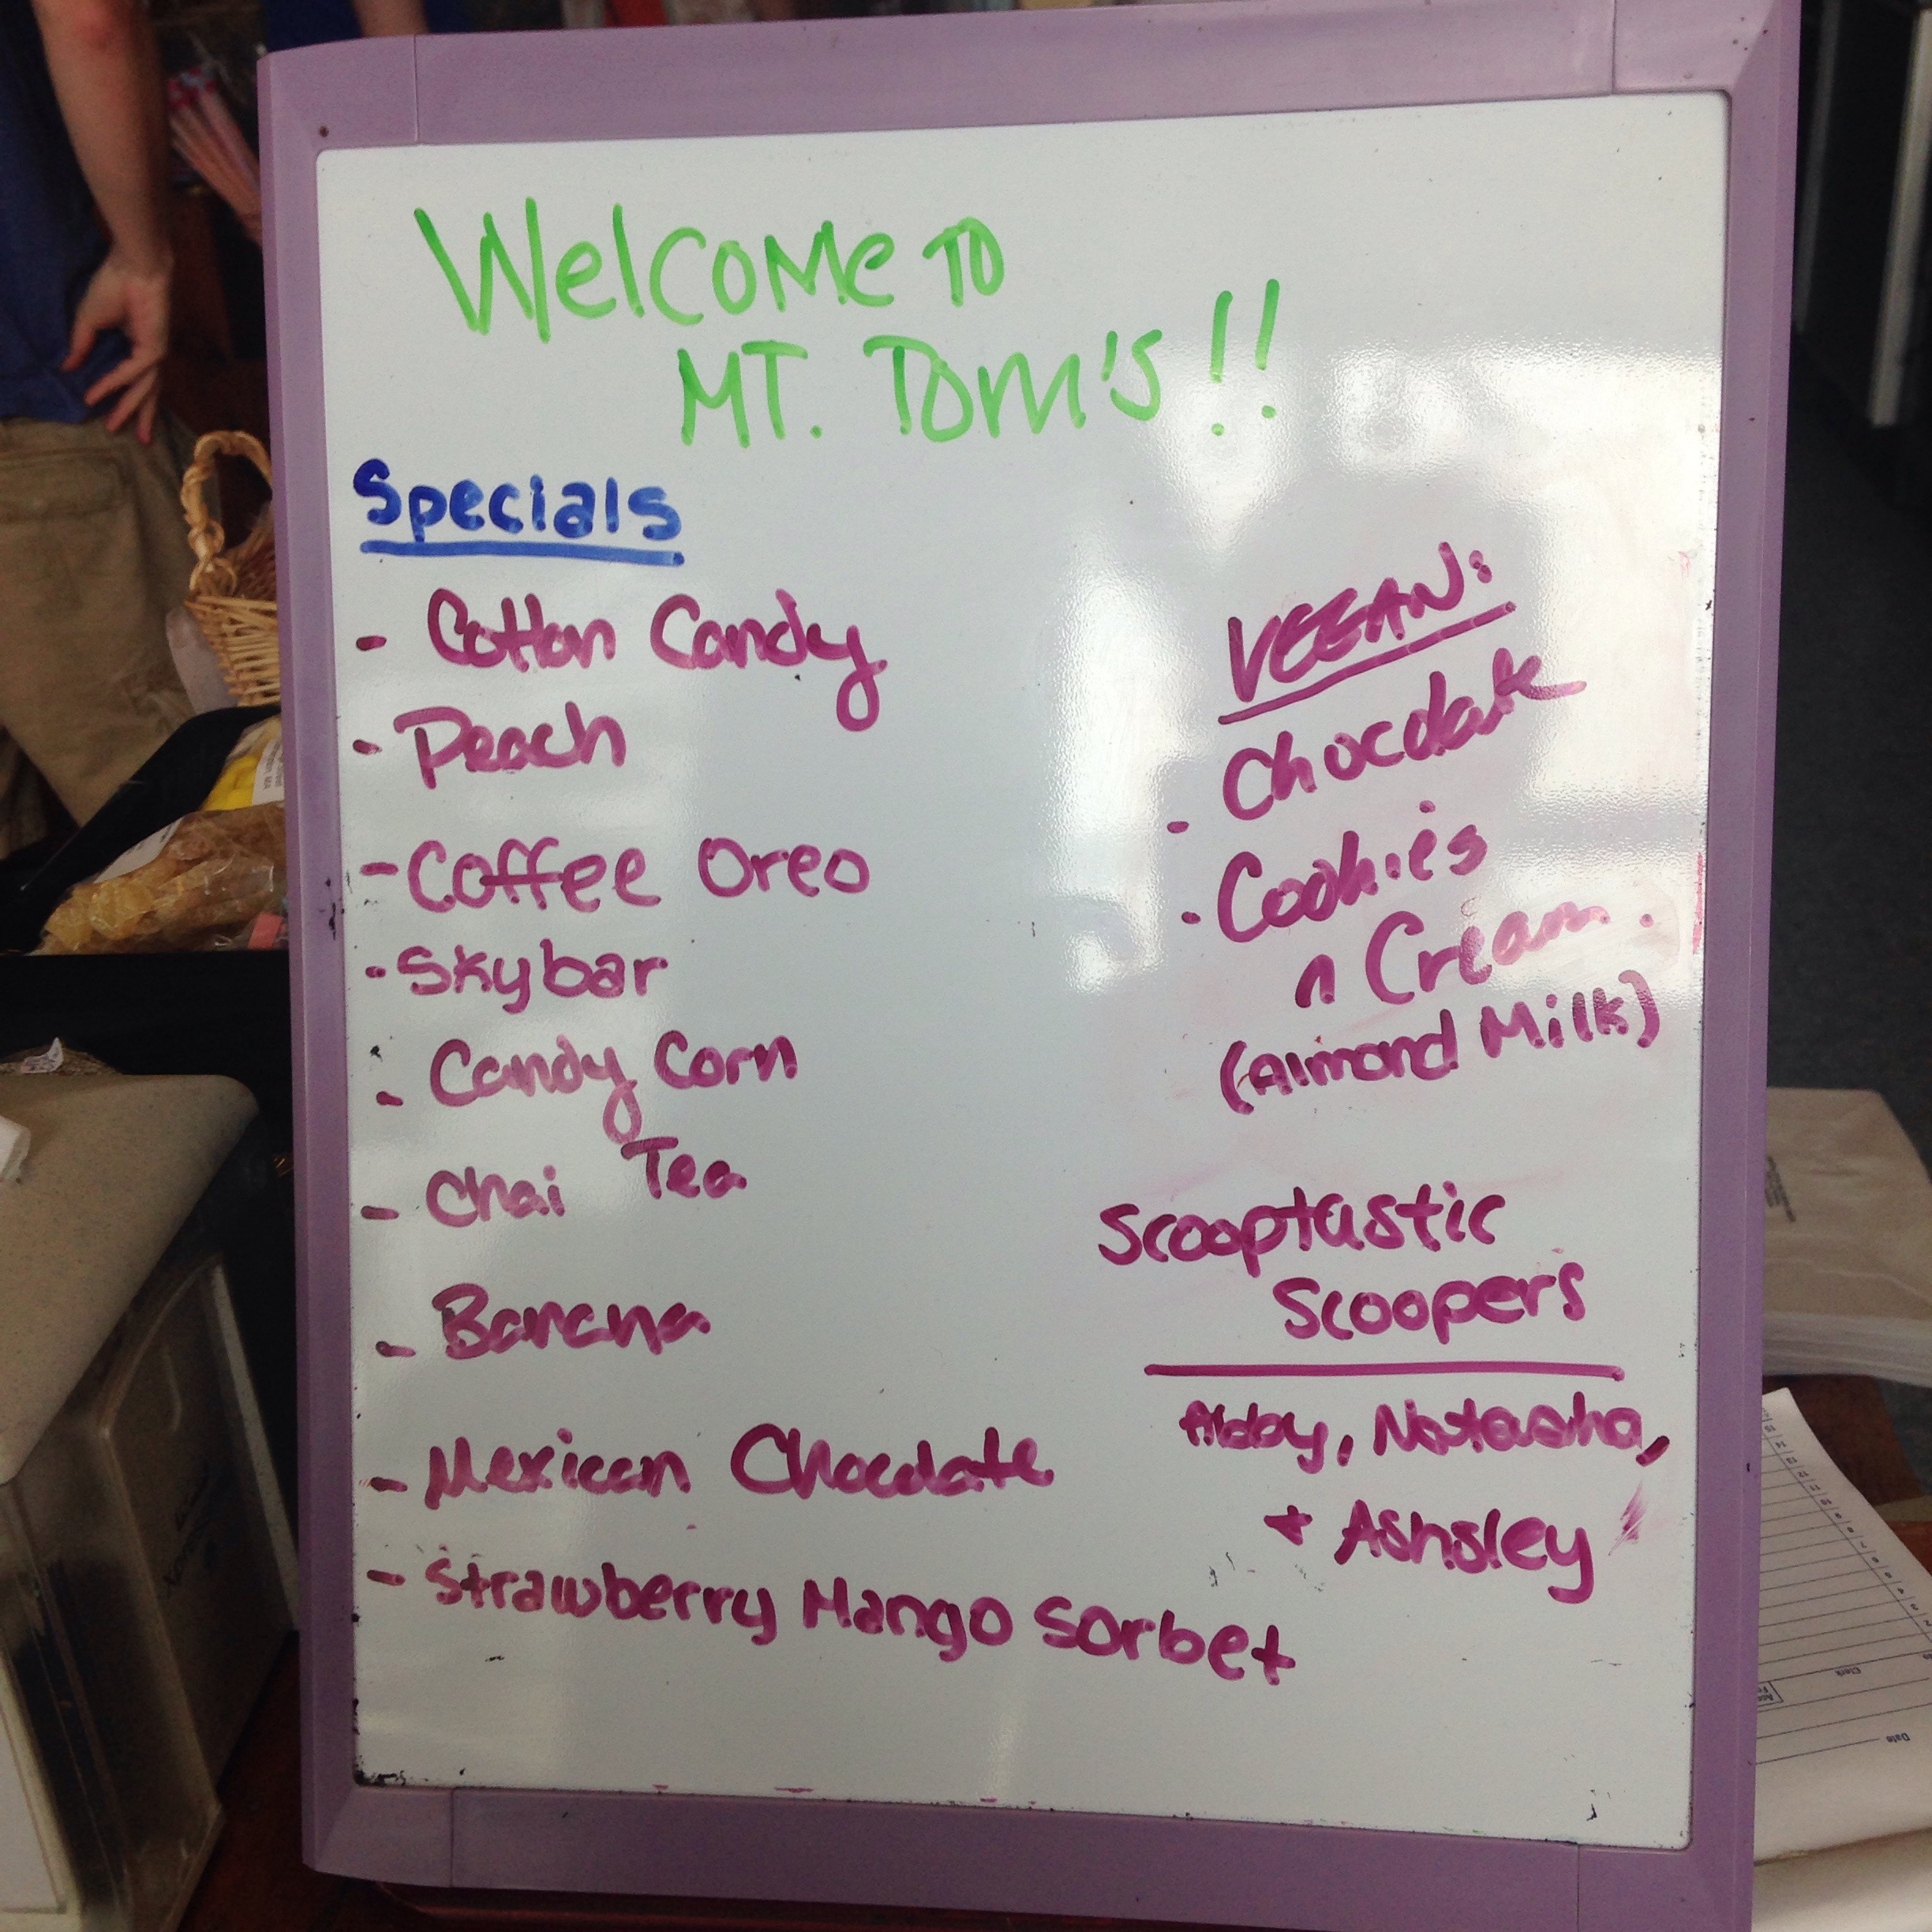 Welcome TO
MT. Tom's!!
Specials
- Cotton Candy
- Peach
- Coffee Oreo
- Skybar
- Candy Corn
- Chai Tea
- Banana
- Mexican Chocolate
- Strawberry Mango Sorbet
VEGAN:
- Chocolate
- Cookies
n Cream
(Almond Milk)
Scooptastic
Scoopers
Abby, Natasha,
+ Ashsley
Clerk
Date